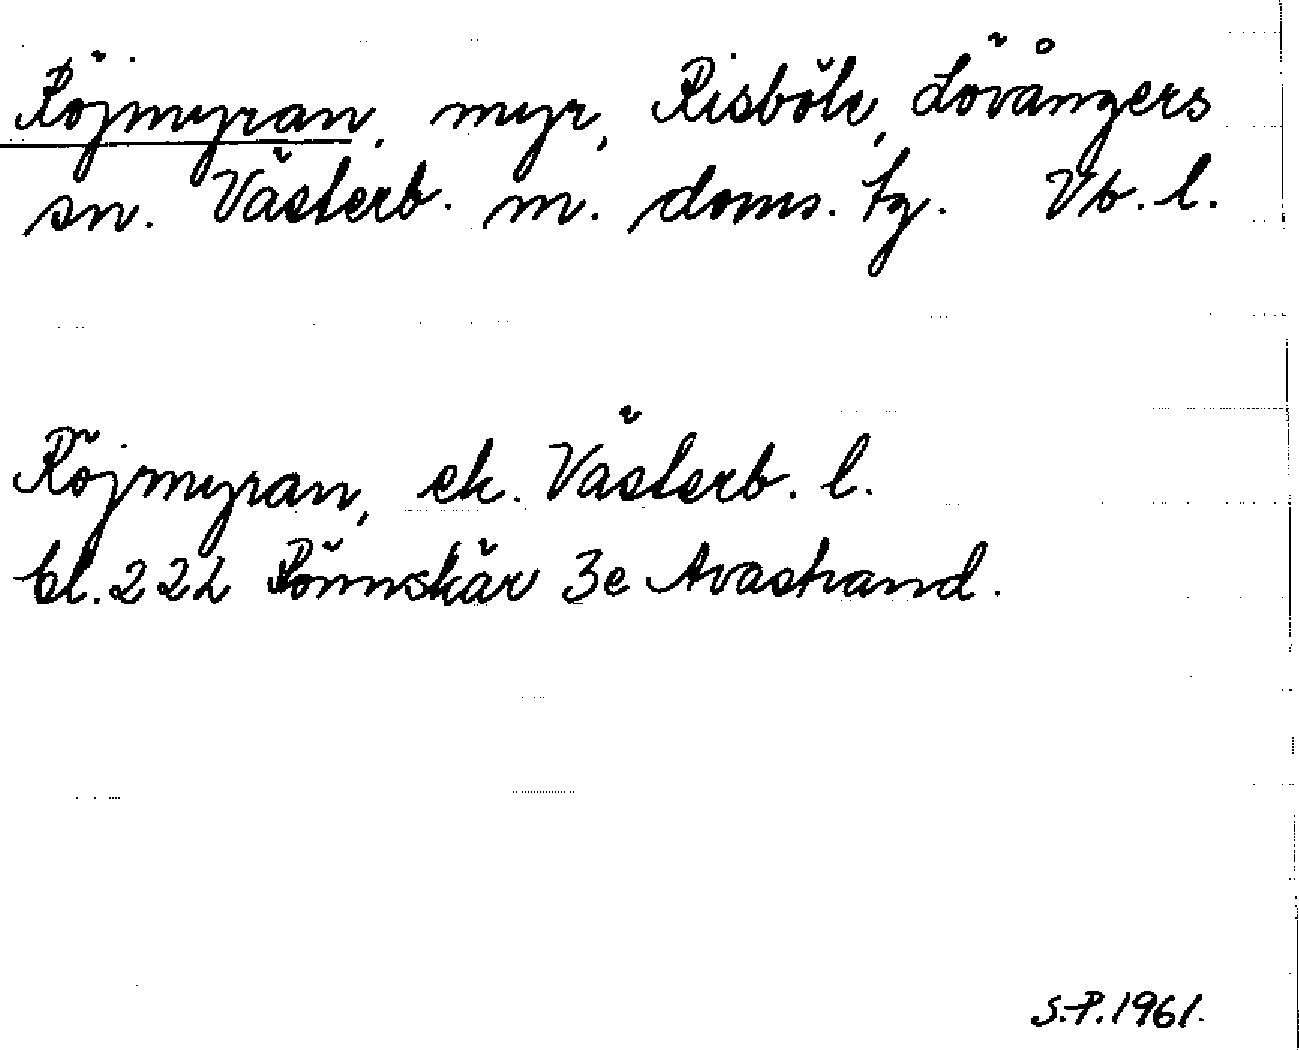 Röjmyran, myr, Risböle, Lövångers
sn. Västerb. m. doms. tg. Vb. l.
Röjmyran, ek. Västerb. l.
bl. 222 Rönnskär 3e Avastrand.
S.P. 1961.